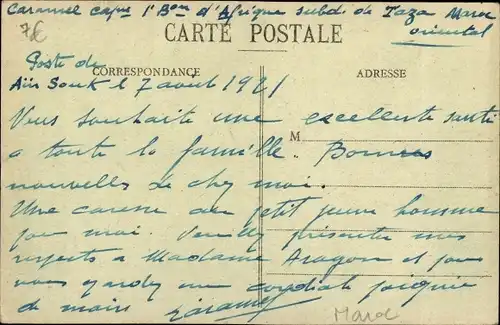 Caramel Cap. 1er Bon d'Afrique subd. de Taza Maroc
oriental
7€
CARTE POSTALE
Poste de
CORRESPONDANCE
ADRESSE
Aïn Souk le 7 août 1921
Vous souhaite une excellente santé
M
a toute la famille. Bonnes
nouvelles de chez moi.
Une caresse au petit jeune homme
pour moi. Veuillez présenter mes
respects à Madame Aragon et pour
vous gardez une cordiale poignée
de main
Maroc